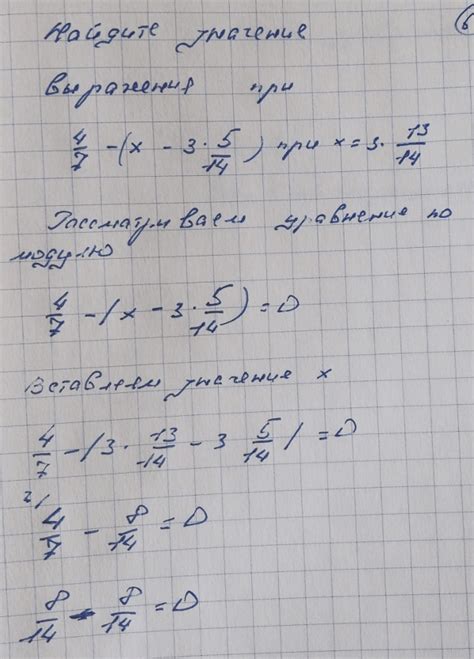 Найдите значение
выражения при
4/7 - (x - 3 · 5/14) при x = 3 · 13/14
Рассматриваем уравнение по
модулю
4/7 - (x - 3 · 5/14) = 0
Вставляем значение x
4/7 - (3 · 13/14 - 3 5/14) = 0
2/
4/7 - 8/14 = 0
8/14 - 8/14 = 0